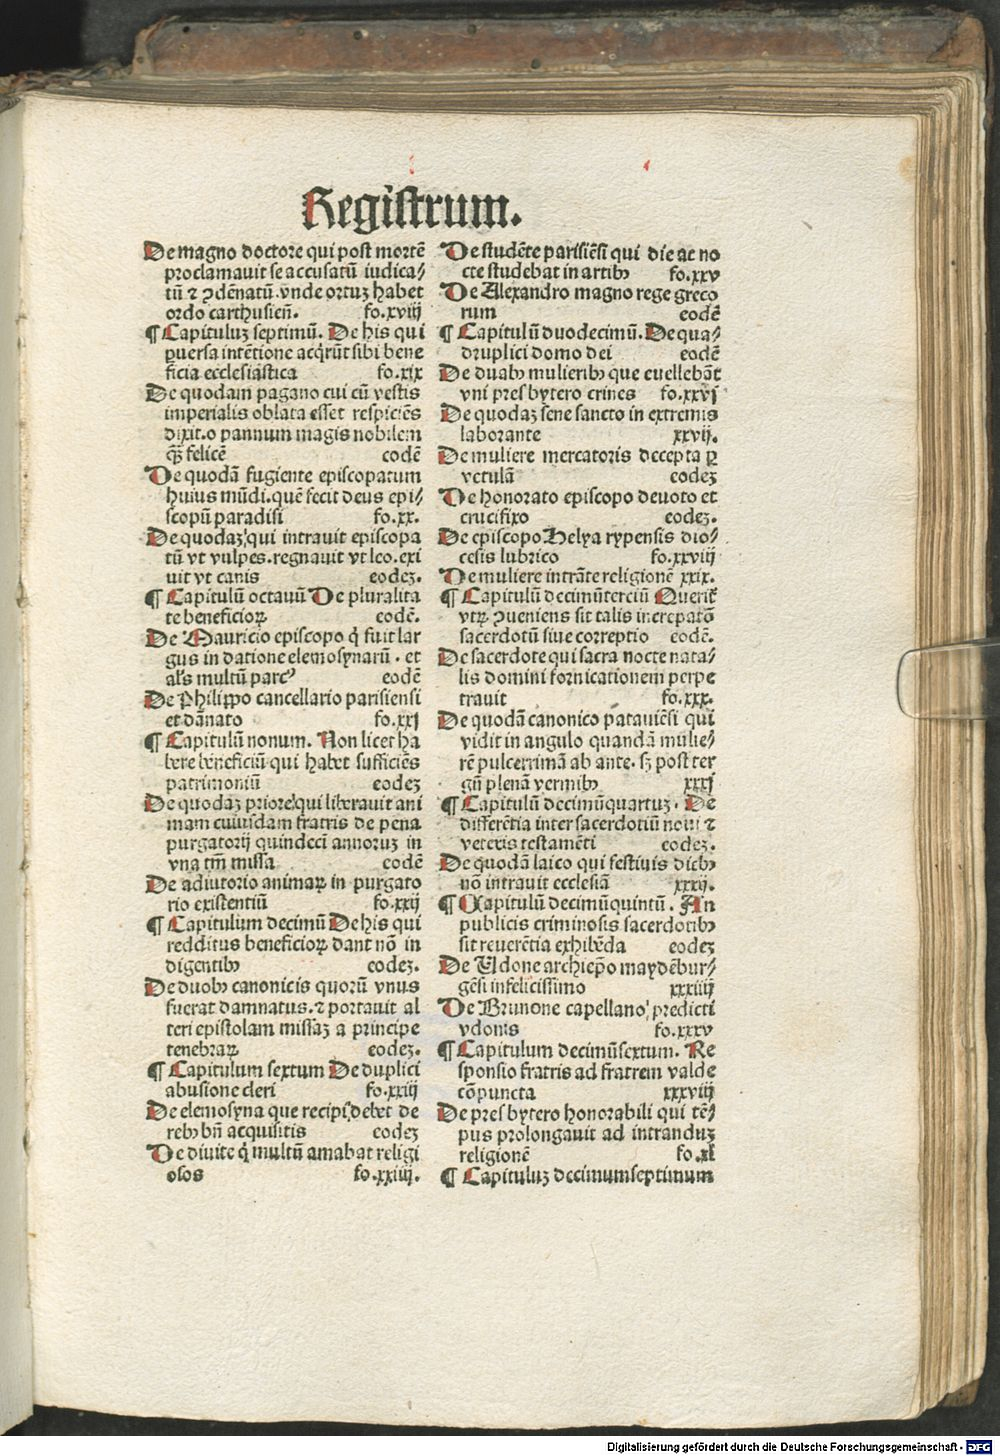 Registrum.
De magno doctore qui post mortē
proclamavit se accusatū iudica⸗
tū ⁊ ꝯdēnatū. vnde ortuz habet
ordo carthusien̄. fo.xviij
¶ Capituluz septimū. De his qui
ꝑuersa intētione acq̄rūt sibi bene
ficia ecclesiastica fo.xix
De quodam pagano cui cū vestis
imperialis oblata esset respiciēs
dixit. o pannum magis nobilem
q̄ꝫ felicē eodē
De quodā fugiente episcopatum
huius mūdi. quē fecit deus epi⸗
scopū paradisi fo.xx.
De quodaz qui intravit episcopa
tū vt vulpes. regnauit vt leo. exi
uit vt canis eodez.
¶ Capitulū octauū De pluralita
te beneficioꝝ eodē.
De Mauricio episcopo q̇ fuit lar
gus in datione elemosynarū. et
al's multū parcꝰ eodē
De Philippo cancellario parisiensi
et dānato fo.xxj
¶ Capitulū nonum. Non licet ha
bere beneficiū qui habet sufficiēs
patrimoniū eodez
De quodaz priore qui liberauit ani
mam cuiusdam fratris de pena
purgatorij quindeci annoruz in
vna tm̄ missa eodē
De adiutorio animaꝝ in purgato
rio existentiū fo.xxij
¶ Capitulum decimū De his qui
redditus beneficioꝝ dant nō in
digentibꝫ eodez.
De duobꝫ canonicis quorū vnus
fuerat damnatus. ⁊ portauit al
teri epistolam missaz a principe
tenebraꝝ eodez.
¶ Capitulum sextum De duplici
abusione cleri fo.xxiij
De elemosyna que recipi debet de
rebꝫ bn̄ acquisitis eodez
De diuite q̇ multū amabat religi
osos fo.xxiiij.
De studēte parisiēsi qui die ac no
cte studebat in artibꝫ fo.xxv
De Alexandro magno rege greco
rum eodē
¶ Capitulū duodecimū. De qua⸗
druplici domo dei eodē
De duabꝫ mulieribꝫ que euellebāt
vni presbytero crines fo.xxvj
De quodaz sene sancto in extremis
laborante xxvij.
De muliere mercatoris decepta ꝑ
vetulā eodez
De honorato episcopo deuoto et
crucifixo eodez.
De episcopo Helya rypensis dio⸗
cesis lubrico fo.xxviij
De muliere intrāte religionē xxix.
¶ Capitulū decimūterciū Querit̄
vtꝝ ꝯueniens sit talis increpatō
sacerdotū siue correptio eodē.
De sacerdote qui sacra nocte nata⸗
lis domini fornicationem perpe
trauit fo.xxx.
De quodā canonico patauiēsi qui
vidit in angulo quandā mulie⸗
rē pulcerrimā ab ante. sꝫ post ter
gū plenā vermibꝫ xxxj
¶ Capitulū decimūquartuz. De
differētia inter sacerdotiū noui ⁊
veteris testamēti eodez.
De quodā laico qui festiuis diebꝫ
nō intrauit ecclesiā xxxij.
¶ Capitulū decimūquintū. An
publicis criminosis sacerdotibꝫ
sit reuerētia exhibēda eodez
De Udone archiep̄o maydēbur⸗
gēsi infelicissimo xxxiiij
De Brunone capellano predicti
vdonis fo.xxxv
¶ Capitulum decimūsextum. Re
sponsio fratris ad fratrem valde
cōpuncta xxxviij
De presbytero honorabili qui tē⸗
pus prolongauit ad intranduz
religionē fo.xl
¶ Capituluz decimumseptimum
Digitalisierung gefördert durch die Deutsche Forschungsgemeinschaft - DFG